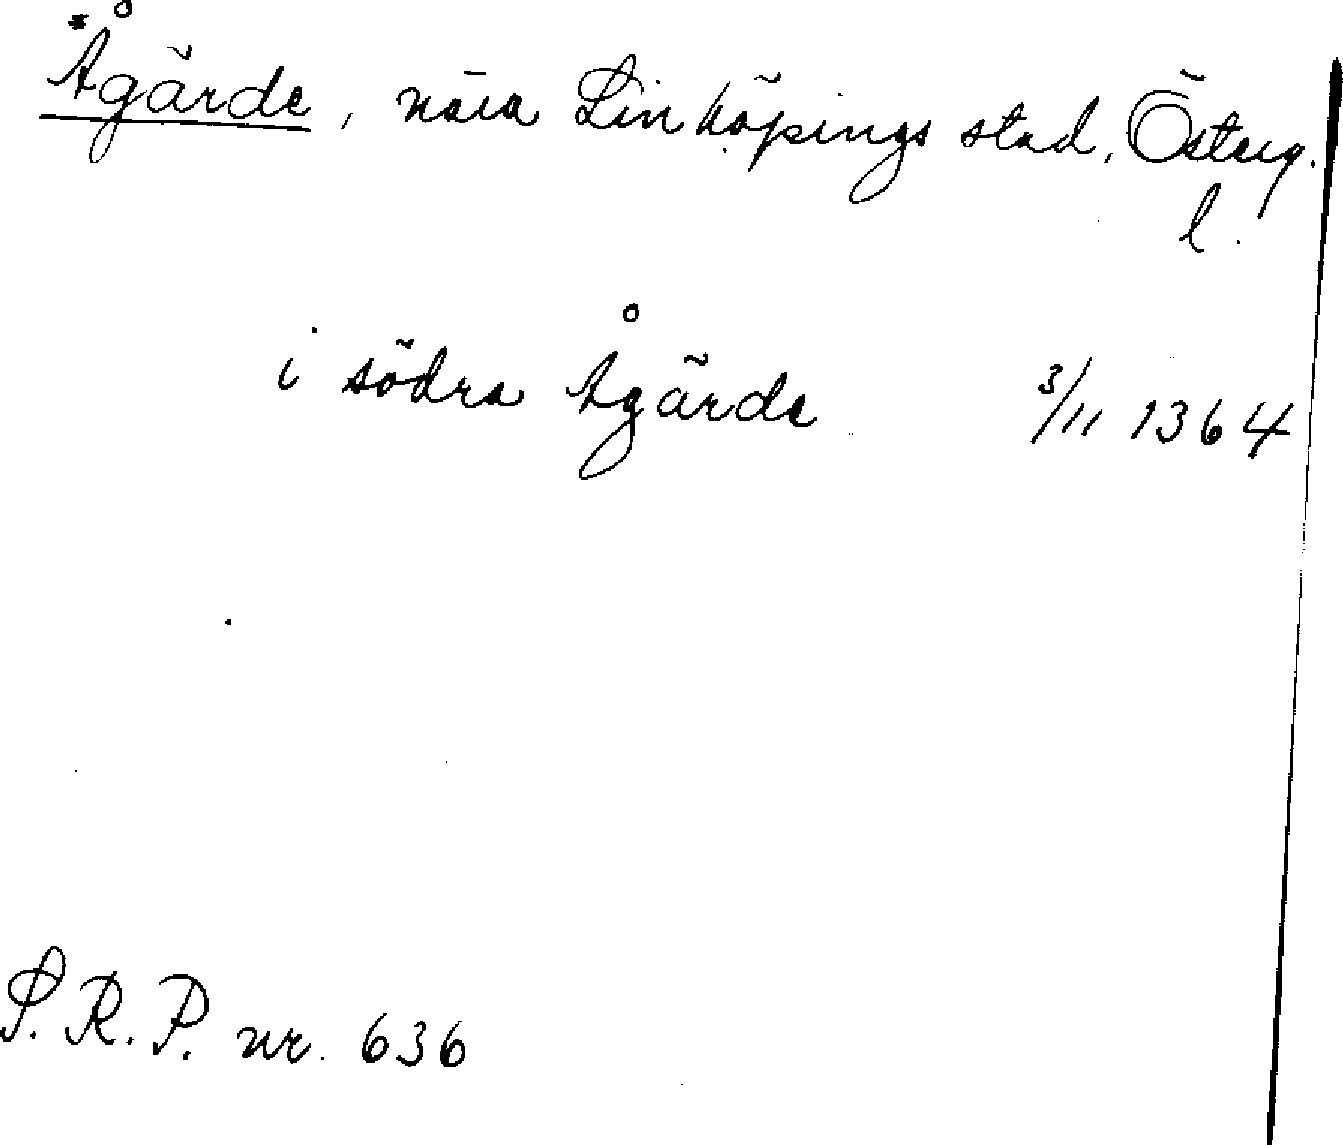 *Ågärde, nära Linköpings stad, Österg.
l.
i södra Ågärde 3/11 1364
S.R.P. nr. 636